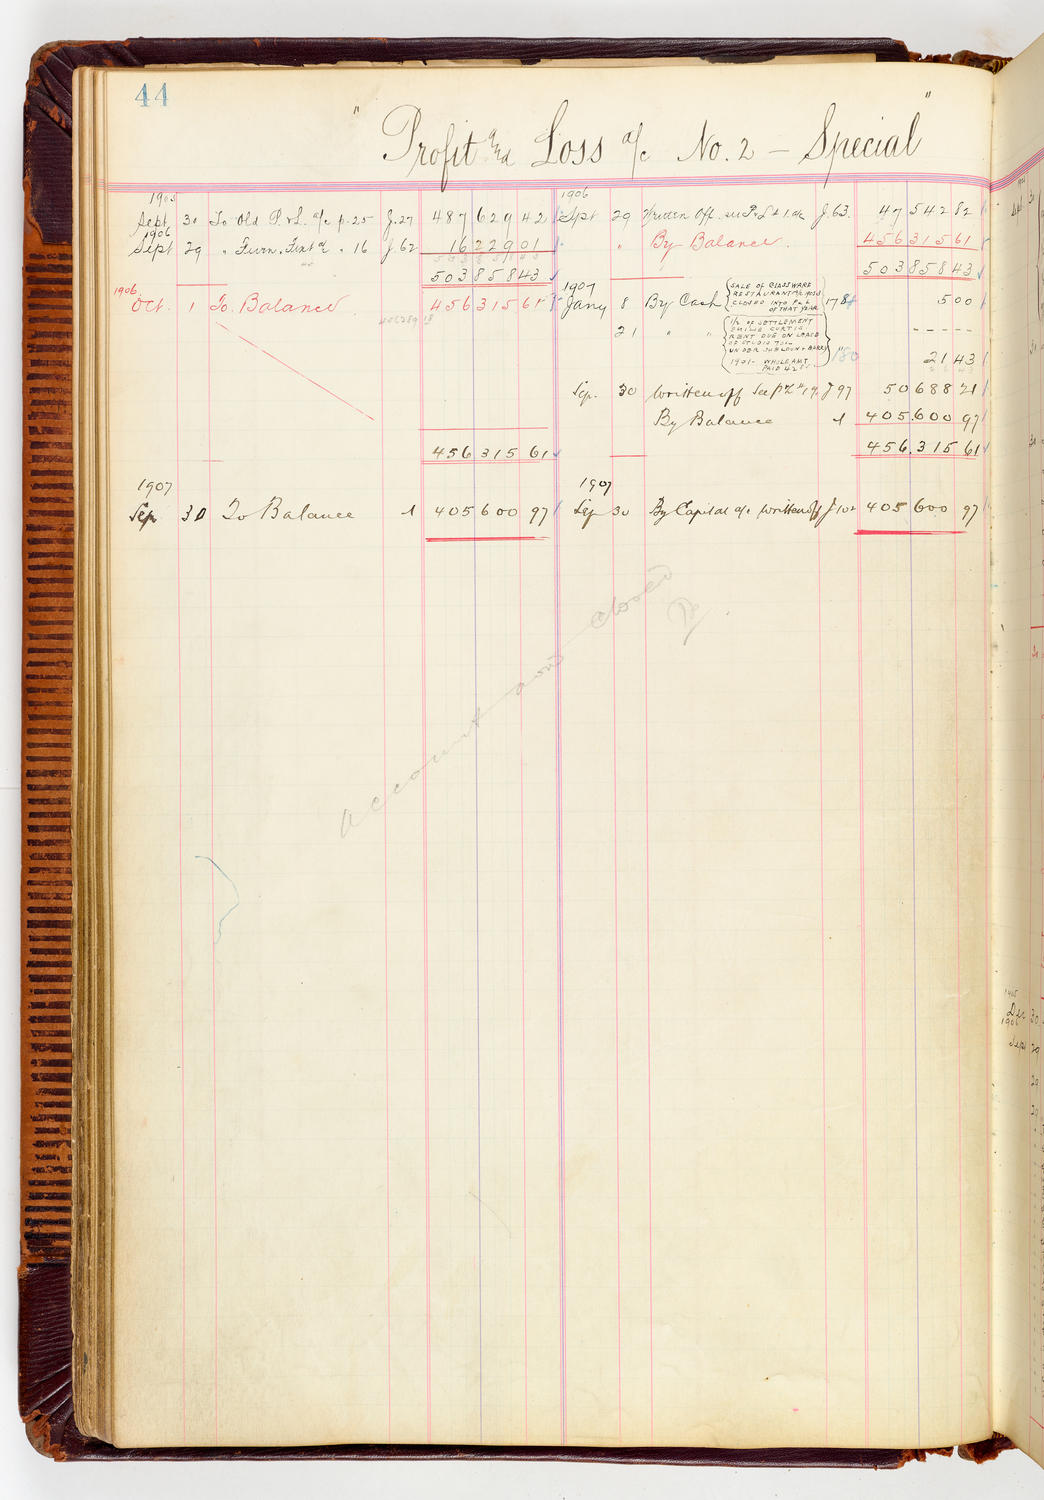 44
" Profit and Loss a/c No. 2 — Special "
1905
Sept. 30 To Old P. & L. a/c p. 25 J. 27 487 629 42
1906
Sept 29 " Furn. & Fixt a/c " 16 J. 62 16 229 01
503 858 43
1906
Oct. 1 To Balance 456 315 61
456 315 61
1907
Sep 30 To Balance 405 600 97
1906
Sept 29 Written Off J. 63. 47 542 82
" By Balance. 456 315 61
503 858 43
1907
Jany 8 By Cash 178 5 00
SALE OF GLASSWARE
RESTAURANT
CLOSED INTO P & L
OF THAT YEAR
21 " " 180 21 43
1/2 OF SETTLEMENT
EMILIE CURTIS
RENT DUE ON LEASE
OF STUDIO
UNDER
1901 - WHOLE AMT
PAID 42
Sep. 30 Written off J 97 50 688 21
By Balance 405 600 97
456 315 61
1907
Sep 30 By Capital a/c written off J 102 405 600 97
account now closed